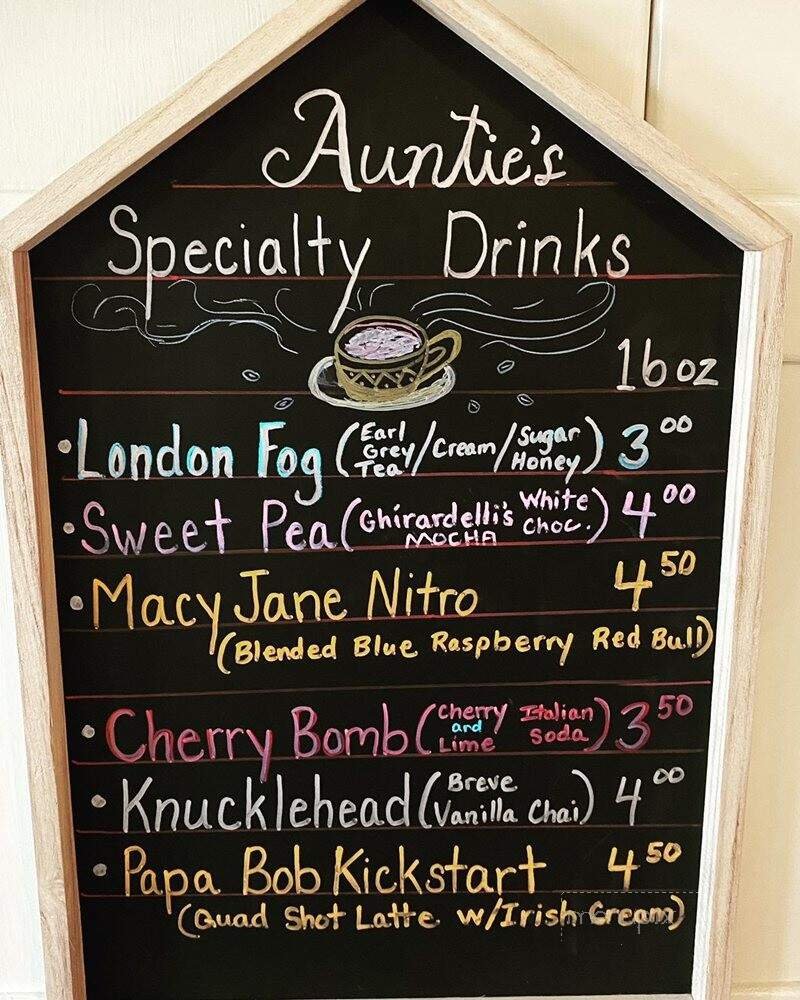 Auntie's
Specialty Drinks
16 oz
• London Fog (Earl Grey Tea/Cream/Sugar Honey) 3 00
• Sweet Pea (Ghirardelli's White MOCHA Choc.) 4 00
• Macy Jane Nitro 4 50
(Blended Blue Raspberry Red Bull)
• Cherry Bomb (Cherry and Lime Italian Soda) 3 50
• Knucklehead (Breve Vanilla Chai) 4 00
• Papa Bob Kickstart 4 50
(Quad Shot Latte w/Irish Cream)